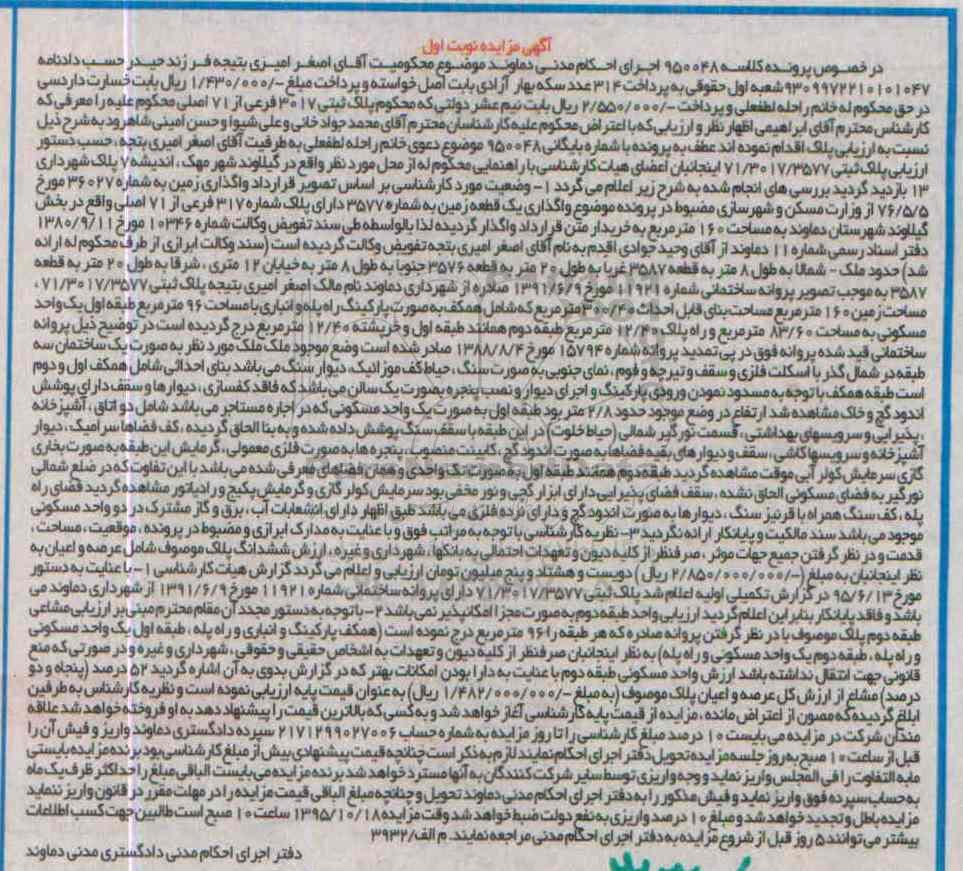 آگهی مزایده نوبت اول
در خصوص پرونده کلاسه ۹۵۰۰۴۸ اجرای احکام مدنی دماوند موضوع محکومیت آقای اصغر امیری بتیجه فرزند حیدر حسب دادنامه
۹۳۰۹۹۷۲۲۱۰۱۰۱۰۴۷ شعبه اول حقوقی به پرداخت ۳۱۴ عدد سکه بهار آزادی بابت اصل خواسته و پرداخت مبلغ -/۱/۴۳۰/۰۰۰ ریال بابت خسارت دادرسی
در حق محکوم له خانم راحله لطفعلی و پرداخت -/۲/۵۵۰/۰۰۰ ریال بابت نیم عشر دولتی که محکوم پلاک ثبتی ۳۰۱۷ فرعی از ۷۱ اصلی محکوم علیه را معرفی که
کارشناس محترم آقای ابراهیمی اظهار نظر و ارزیابی که با اعتراض محکوم علیه کارشناسان محترم آقای محمد جواد خانی و علی شیوا و حسن امینی شاهرود به شرح ذیل
نسبت به ارزیابی پلاک اقدام نموده اند عطف به پرونده با شماره بایگانی ۹۵۰۰۴۸ موضوع دعوی خانم راحله لطفعلی به طرفیت آقای اصغر امیری بتجه ، حسب دستور
ارزیابی پلاک ثبتی ۷۱/۳۰۱۷/۳۵۷۷ اینجانبان اعضای هیات کارشناسی با راهنمایی محکوم له از محل مورد نظر واقع در گیلاوند شهر مهک ، اندیشه ۷ پلاک شهرداری
۱۳ بازدید گردید بررسی های انجام شده به شرح زیر اعلام می گردد ۱- وضعیت مورد کارشناسی بر اساس تصویر قرارداد واگذاری زمین به شماره ۳۶۰۲۷ مورخ
۷۶/۵/۵ از وزارت مسکن و شهرسازی مضبوط در پرونده موضوع واگذاری یک قطعه زمین به شماره ۳۵۷۷ دارای پلاک شماره ۳۱۷ فرعی از ۷۱ اصلی واقع در بخش
گیلاوند شهرستان دماوند به مساحت ۱۶۰ متر مربع به خریدار متن قرارداد واگذار گردیده لذا بالواسطه طی سند تفویض وکالت شماره ۱۰۳۴۶ مورخ ۱۳۸۰/۹/۱۱
دفتر اسناد رسمی شماره ۱۱ دماوند از آقای وحید جوادی اقدم به نام آقای اصغر امیری بتجه تفویض وکالت گردیده است (سند وکالت ابرازی از طرف محکوم له ارائه
شد) حدود ملک - شمالا به طول ۸ متر به قطعه ۳۵۸۷ غربا به طول ۲۰ متر به قطعه ۳۵۷۶ جنوبا به طول ۸ متر به خیابان ۱۲ متری ، شرقا به طول ۲۰ متر به قطعه
۳۵۸۷ به موجب تصویر پروانه ساختمانی شماره ۱۱۹۲۱ مورخ ۱۳۹۱/۶/۹ صادره از شهرداری دماوند نام مالک اصغر امیری بتیجه پلاک ثبتی ۷۱/۳۰۱۷/۳۵۷۷ ،
مساحت زمین ۱۶۰ متر مربع مساحت بنای قابل احداث ۳۰۰/۴۰ متر مربع که شامل همکف به صورت پارکینگ ، راه پله و انباری با مساحت ۹۶ متر مربع طبقه اول یک واحد
مسکونی به مساحت ۸۳/۶۰ متر مربع و راه پلاک ۱۲/۴۰ متر مربع طبقه دوم همانند طبقه اول و خرپشته ۱۲/۴۰ متر مربع درج گردیده است در توضیح ذیل پروانه
ساختمانی قید شده پروانه فوق در پی تمدید پروانه شماره ۱۵۷۹۴ مورخ ۱۳۸۸/۸/۴ صادر شده است وضع موجود ملک ملک مورد نظر به صورت یک ساختمان سه
طبقه در شمال گذر با اسکلت فلزی و سقف و تیرچه و فوم ، نمای جنوبی به صورت سنگ ، حیاط کف موزائیک ، دیوار سنگ می باشد بنای احداثی شامل همکف اول و دوم
است طبقه همکف با توجه به مسدود نمودن ورودی پارکینگ و اجرای دیوار و نصب پنجره بصورت یک سالن می باشد که فاقد کفسازی ، دیوارها و سقف دارای پوشش
اندود گچ و خاک مشاهده شد ارتفاع در وضع موجود حدود ۲/۸ متر بود طبقه اول به صورت یک واحد مسکونی که در اجاره مستاجر می باشد شامل دو اتاق ، آشپزخانه
، پذیرایی و سرویسهای بهداشتی ، قسمت نورگیر شمالی (حیاط خلوت) در این طبقه با سقف سنگ پوشش داده شده و به بنا الحاق گردیده ، کف فضاها سرامیک ، دیوار
آشپزخانه و سرویسها کاشی ، سقف و دیوارهای بقیه فضاها به صورت اندود گچ ، کابینت منصوب ، پنجره ها به صورت فلزی معمولی ، گرمایش این طبقه به صورت بخاری
گازی سرمایش کولر آبی موقت مشاهده گردید طبقه دوم همانند طبقه اول به صورت تک واحدی و همان فضاهای معرفی شده می باشد با این تفاوت که در ضلع شمالی
نورگیر به فضای مسکونی الحاق نشده ، سقف فضای پذیرایی دارای ابزار گچی و نور مخفی بود سرمایش کولر گازی و گرمایش پکیج و رادیاتور مشاهده گردید فضای راه
پله ، کف سنگ همراه با قرنیز سنگ ، دیوارها به صورت اندود گچ و دارای نرده فلزی می باشد طبق اظهار دارای انشعابات آب ، برق و گاز مشترک در دو واحد مسکونی
موجود می باشد سند مالکیت و پایانکار ارائه نگردید ۳- نظریه کارشناسی با توجه به مراتب فوق و با عنایت به مدارک ابرازی و مضبوط در پرونده ، موقعیت ، مساحت ،
قدمت و در نظر گرفتن جمیع جهات موثر ، صرفنظر از کلیه دیون و تعهدات احتمالی به بانکها ، شهرداری و غیره ، ارزش ششدانگ پلاک موصوف شامل عرصه و اعیان به
نظر اینجانبان به مبلغ (-/۲/۸۵۰/۰۰۰/۰۰۰ ریال ) دویست و هشتاد و پنج میلیون تومان ارزیابی و اعلام می گردد گزارش هیات کارشناسی ۱- با عنایت به دستور
مورخ ۹۵/۶/۱۳ در گزارش تکمیلی اولیه اعلام شد پلاک ثبتی ۷۱/۳۰۱۷/۳۵۷۷ دارای پروانه ساختمانی شماره ۱۱۹۲۱ مورخ ۱۳۹۱/۶/۹ از شهرداری دماوند می
باشد و فاقد پایانکار بنابر این اعلام گردید ارزیابی واحد طبقه دوم به صورت مجزا امکانپذیر نمی باشد ۲- با توجه به دستور مجدد آن مقام محترم مبنی بر ارزیابی مشاعی
طبقه دوم پلاک موصوف با در نظر گرفتن پروانه صادره که هر طبقه را ۹۶ متر مربع درج نموده است (همکف پارکینگ و انباری و راه پله ، طبقه اول یک واحد مسکونی
و راه پله ، طبقه دوم یک واحد مسکونی و راه پله) به نظر اینجانبان صرفنظر از کلیه دیون و تعهدات به اشخاص حقیقی و حقوقی ، شهرداری و غیره و در صورتی که منع
قانونی جهت انتقال نداشته باشد ارزش واحد مسکونی طبقه دوم با عنایت به دارا بودن امکانات بهتر که در گزارش بدوی به آن اشاره گردید ۵۲ درصد (پنجاه و دو
درصد) مشاع از ارزش کل عرصه و اعیان پلاک موصوف (به مبلغ -/۱/۴۸۲/۰۰۰/۰۰۰ ریال) به عنوان قیمت پایه ارزیابی نموده است و نظریه کارشناس به طرفین
ابلاغ گردیده که مصون از اعتراض مانده ، مزایده از قیمت پایه کارشناسی آغاز خواهد شد و به کسی که بالاترین قیمت را پیشنهاد دهد به او فروخته خواهد شد علاقه
مندان شرکت در مزایده می بایست ۱۰ درصد مبلغ کارشناسی را تا روز مزایده به شماره حساب ۲۱۷۱۲۹۹۰۲۷۰۰۶ سپرده دادگستری دماوند واریز و فیش آن را
قبل از ساعت ۱۰ صبح به روز جلسه مزایده تحویل دفتر اجرای احکام نمایند لازم به ذکر است چنانچه قیمت پیشنهادی بیش از مبلغ کارشناسی بود برنده مزایده بایستی
مابه التفاوت را فی المجلس واریز نماید و وجه واریزی توسط سایر شرکت کنندگان به آنها مسترد خواهد شد برنده مزایده می بایست الباقی مبلغ را حداکثر ظرف یک ماه
به حساب سپرده فوق واریز نماید و فیش مذکور را به دفتر اجرای احکام مدنی دماوند تحویل و چنانچه مبلغ الباقی قیمت مزایده را در مهلت مقرر در قانون واریز ننماید
مزایده باطل و تجدید خواهد شد و مبلغ ۱۰ درصد واریزی به نفع دولت ضبط خواهد شد وقت مزایده ۱۳۹۵/۱۰/۱۸ ساعت ۱۰ صبح است طالبین جهت کسب اطلاعات
بیشتر می توانند ۵ روز قبل از شروع مزایده به دفتر اجرای احکام مدنی مراجعه نمایند. م الف/۳۹۳۲
دفتر اجرای احکام مدنی دادگستری مدنی دماوند